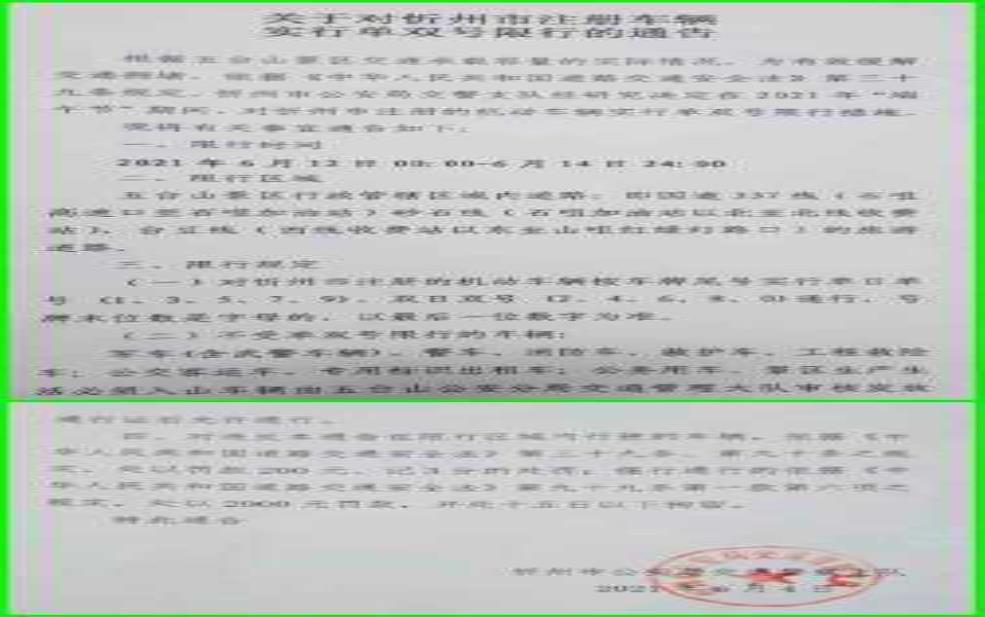 关于对忻州市注册车辆
实行单双号限行的通告
根据五台山景区交通承载容量的实际情况，为有效缓解
交通拥堵，依据《中华人民共和国道路交通安全法》第三十
九条规定，忻州市公安局交警支队经研究决定在2021年“端
午节”期间，对忻州市注册的机动车辆实行单双号限行措施，
现将有关事宜通告如下：
一、限行时间
2021年6月12日00:00-6月14日24:00
二、限行区域
五台山景区行政管辖区域内道路：即国道337线（石咀
高速口至石咀加油站）砂石线（石咀加油站以北至北线收费
站）、台豆线（西线收费站以东至山咀红绿灯路口）的旅游
道路。
三、限行规定
（一）对忻州市注册的机动车辆按车牌尾号实行单日单
号（1、3、5、7、9）、双日双号（2、4、6、8、0）通行，号
牌末位数是字母的，以最后一位数字为准。
（二）不受单双号限行的车辆：
军车(含武警车辆)、警车、消防车、救护车、工程救险
车；公交客运车、专用标识出租车；公务用车、景区生产生
活必须入山车辆由五台山公安分局交通管理大队审核发放
通行证后允许通行。
四、对违反本通告在限行区域内行驶的车辆，依据《中
华人民共和国道路交通安全法》第三十九条、第九十条之规
定，处以罚款200元、记3分的处罚；强行通行的依据《中
华人民共和国道路交通安全法》第九十九条第一款第六项之
规定，处以2000元罚款，并处十五日以下拘留。
特此通告
忻州市公安局交通警察支队
2021年6月4日